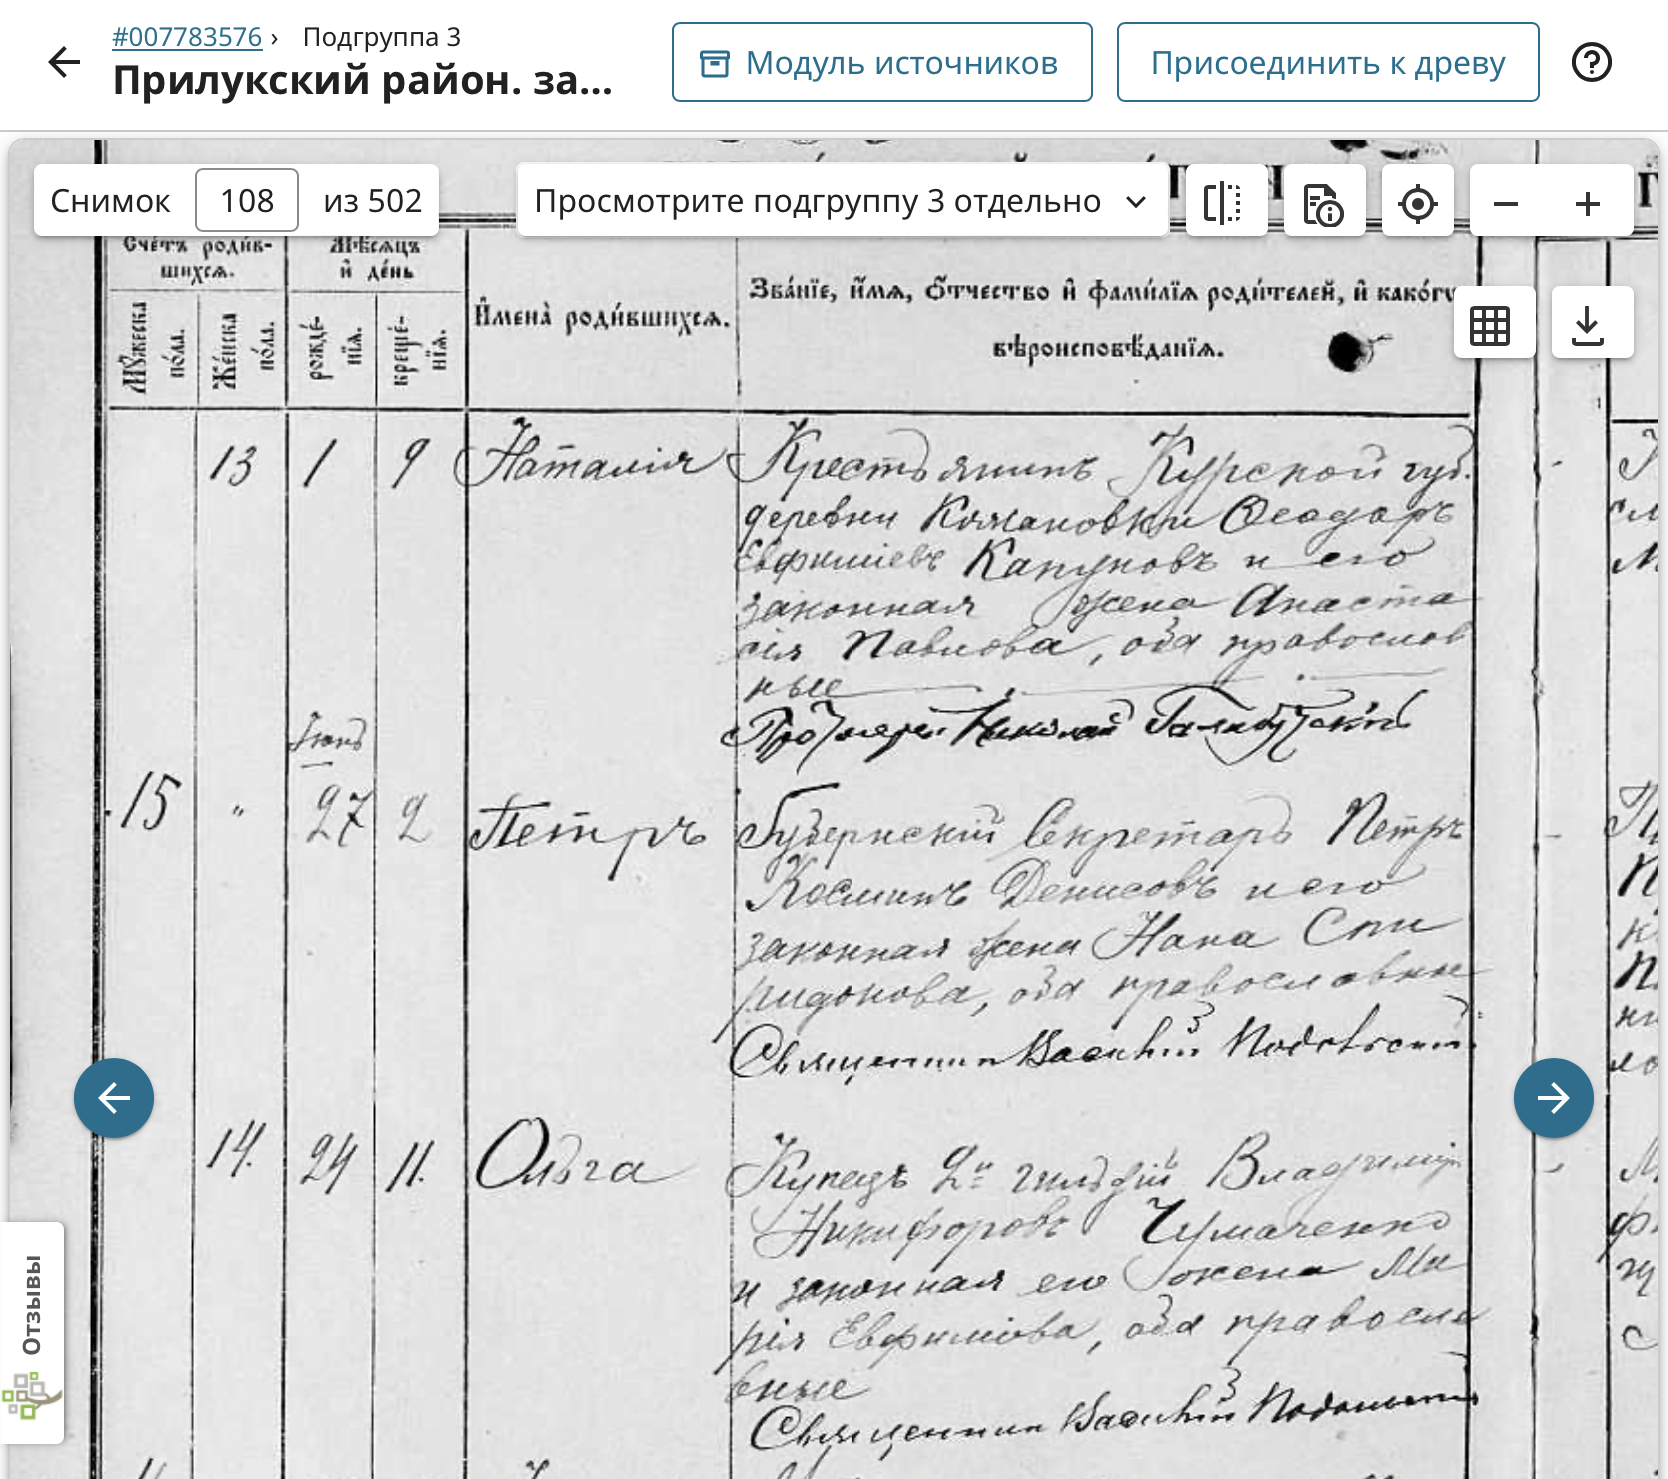 #007783576 › Подгруппа 3
Прилукский район. за...
Модуль источников
Присоединить к древу
Снимок 108 из 502
Просмотрите подгруппу 3 отдельно
Счётъ роди́в-
шихсѧ.
Мѣ́сѧцъ
и҆ де́нь
Мꙋ́жеска
по́ла.
Же́нска
по́ла.
рожде́-
нїѧ.
креще́-
нїѧ.
И҆мена̀ роди́вшихсѧ.
Зва́нїе, и҆́мѧ, ѻ҆́тчество и҆ фами́лїѧ роди́телей, и҆ како́гѡ
вѣроисповѣ́данїѧ.
13 1 9 Наталія Крестьянинъ Курской губ.
деревни Ѳеодоръ
Евфиміевъ и его
законная жена Анаста
сія Павлова, оба православ
ные
Протоіерей Николай
Іюнь
15 " 27 2 Петръ Губернскій Секретарь Петръ
Косминъ Денисовъ и его
законная жена Анна Спи
ридонова, оба православные
Священник Василій
14. 24 11. Ольга Купецъ 2й гильдіи Владиміръ
Никифоровъ Чумаченко
и законная его жена Ма
рія Евфимова, оба правосла
вные
Священник Василій
Отзывы